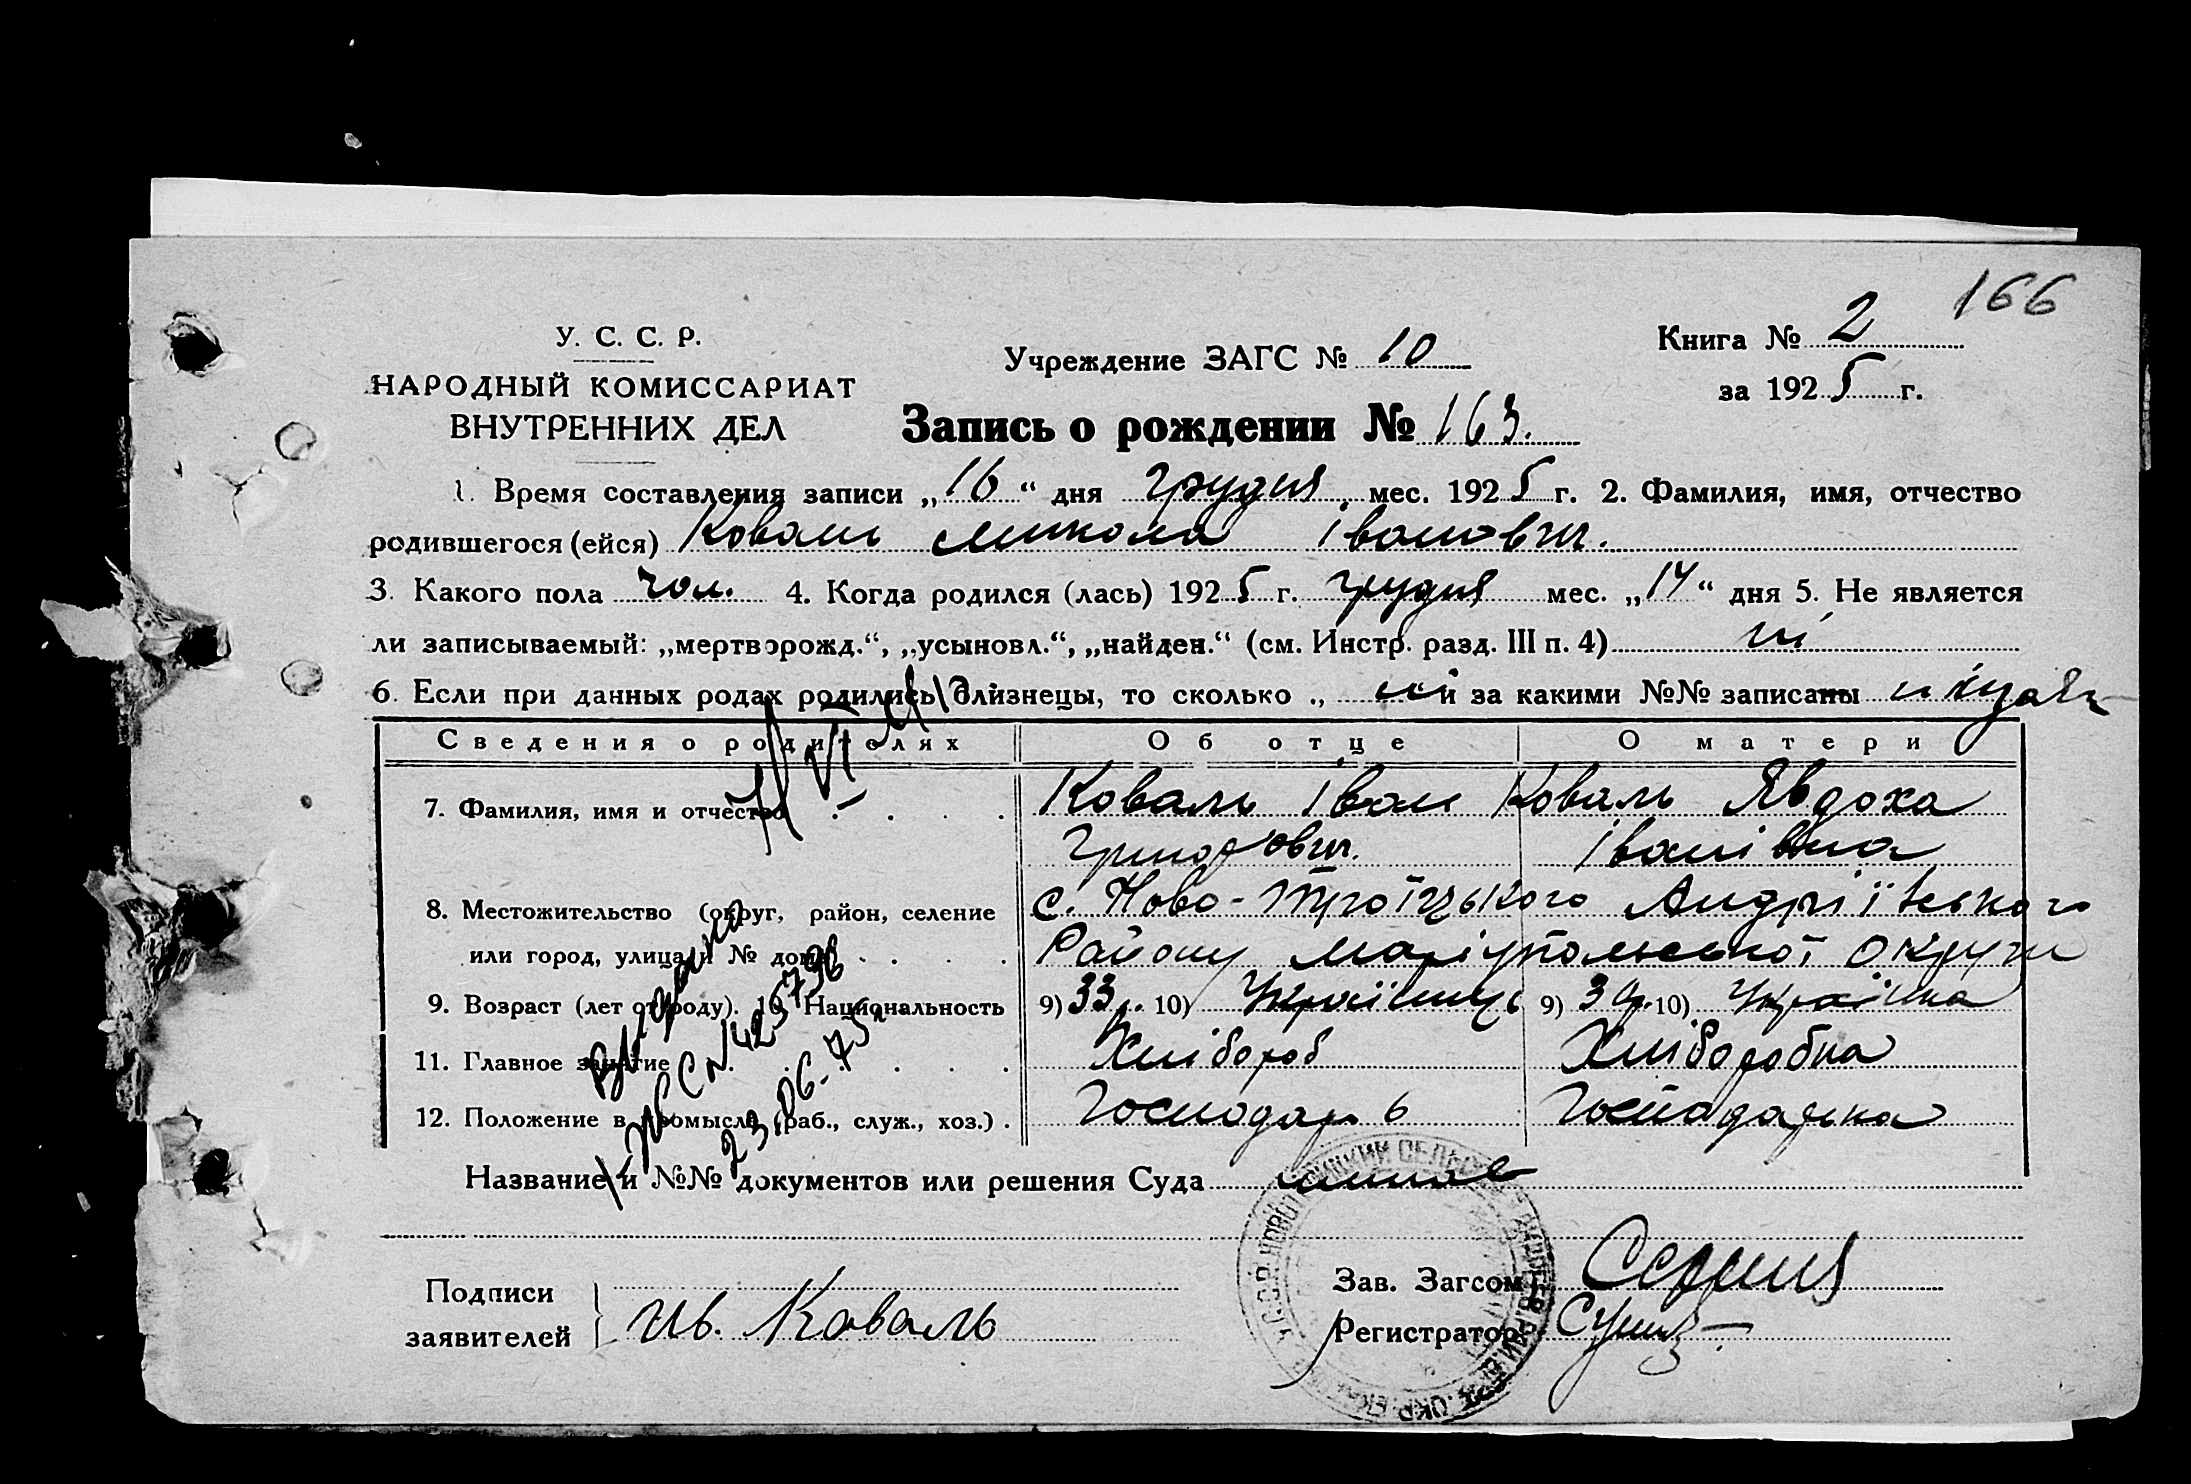 166
У. С. С. Р.
НАРОДНЫЙ КОМИССАРИАТ
ВНУТРЕННИХ ДЕЛ
Учреждение ЗАГС № 10
Книга № 2
за 1925 г.
Запись о рождении № 163.
1. Время составления записи „16“ дня грудня мес. 1925 г. 2. Фамилия, имя, отчество
родившегося (ейся) Коваль Микола Іванович.
3. Какого пола чол. 4. Когда родился (лась) 1925 г. грудня мес. „14“ дня 5. Не является
ли записываемый: „мертворожд.“, „усыновл.“, „найден.“ (см. Инстр. разд. III п. 4) ні
6. Если при данных родах родились близнецы, то сколько „ и за какими №№ записаны
Сведения о родителях Об отце О матери
7. Фамилия, имя и отчество Коваль Іван Коваль Явдоха
Григорович. Іванівна
8. Местожительство (округ, район, селение с. Ново-Троїцького Андріївського
или город, улица и № дома Району Маріупольської округи
9. Возраст (лет от роду). 10. Национальность 9) 33 р. 10) Українець 9) 10) Українка
11. Главное занятие Хлібороб Хлібборобка
12. Положение в промысле (раб., служ., хоз.) Господарь Господарка
Название и №№ документов или решения Суда
Подписи
заявителей Ив. Коваль
Зав. Загсом
Регистратор
23.06-75